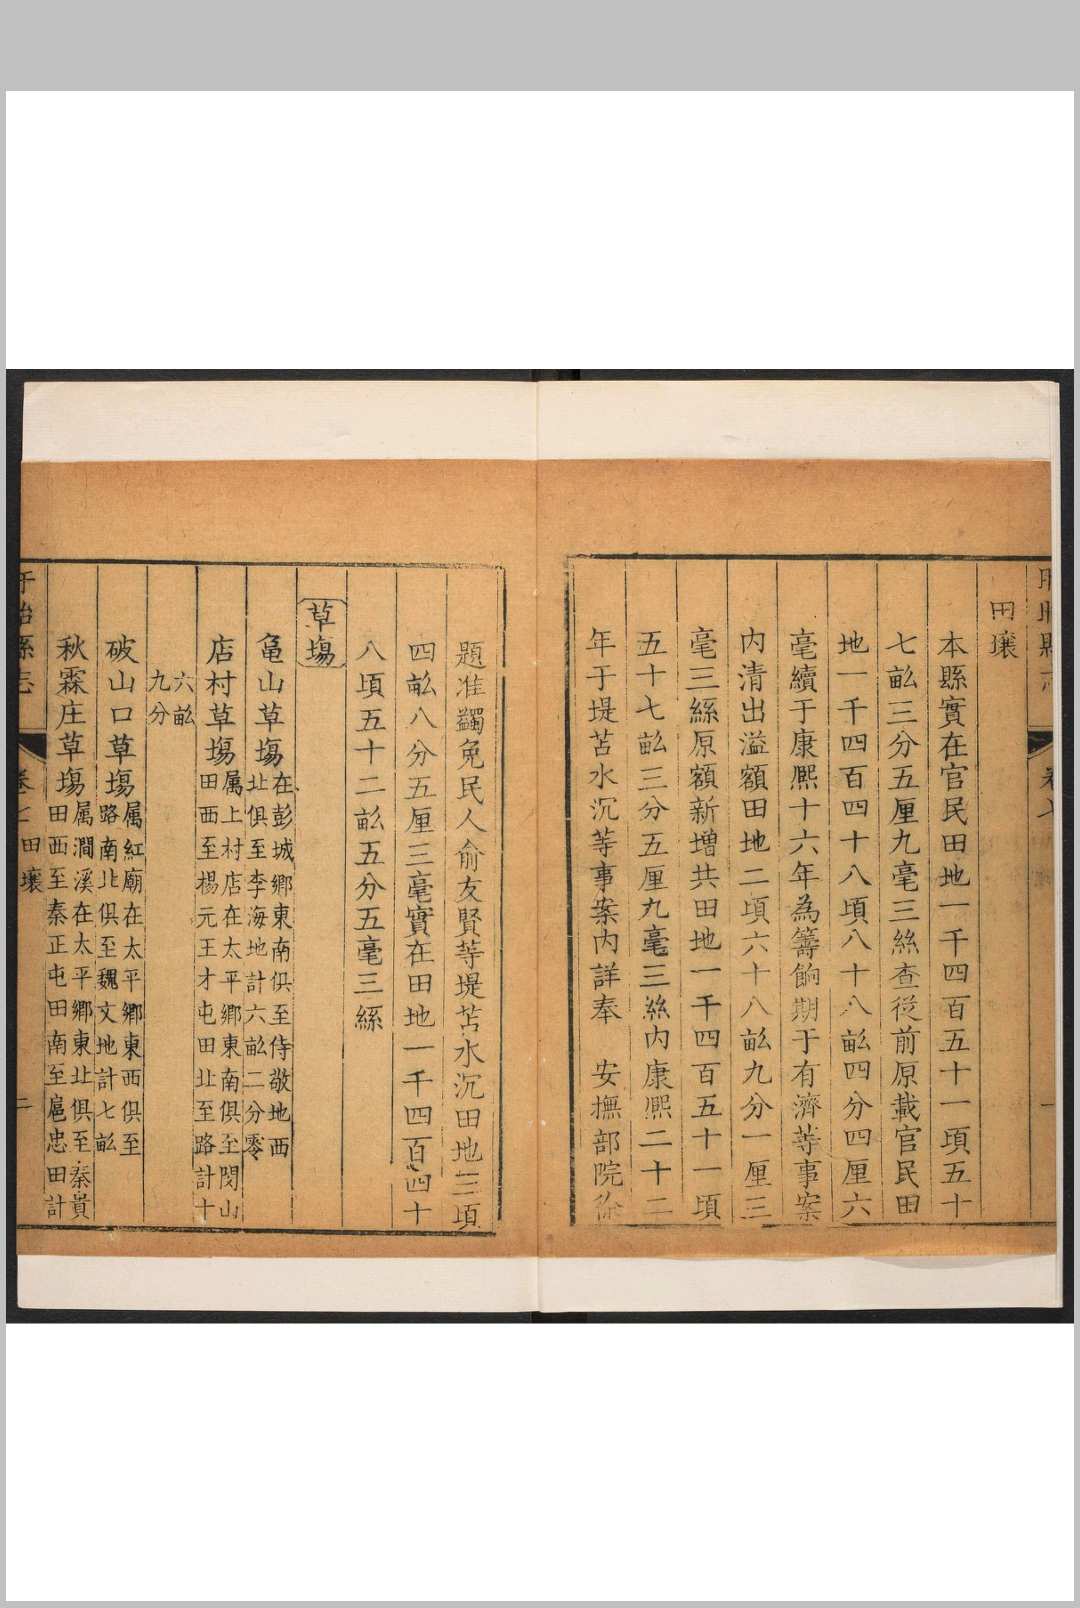 田壤
本縣實在官民田地一千四百五十一項五十
七畝三分五厘九毫三絲查從前原載官民田
地一千四百四十八頃八十八畝四分四厘六
毫續于康熙十六年為籌餉期于有濟等事案
內清出溢額田地二頃六十八畝九分一厘三
毫三絲原額新增共田地一千四百五十一頃
五十七畝三分五厘九毫三絲內康熙二十二
年于堤苦水沉等事案內詳奉 安撫部院徐
題准蠲免民人俞友賢等堤苦水沉田地三頃
四畝八分五厘三毫實在田地一千四百四十
八頃五十二畝五分五毫三絲
草塲
龜山草塲在彭城鄉東南俱至侍敬地西
北俱至李海地計六畝二分零
店村草塲属上村店在太平鄉東南俱至閔山
田西至楊元王才屯田北至路計十
六畝
九分
破山口草塲属紅廟在太平鄉東西俱至
路南北俱至魏文地計七畝
秋霖庄草塲属澗溪在太平鄉東北俱至秦貴
田西至秦正屯田南至扈忠田計
盱眙縣志 卷七 田壤 二